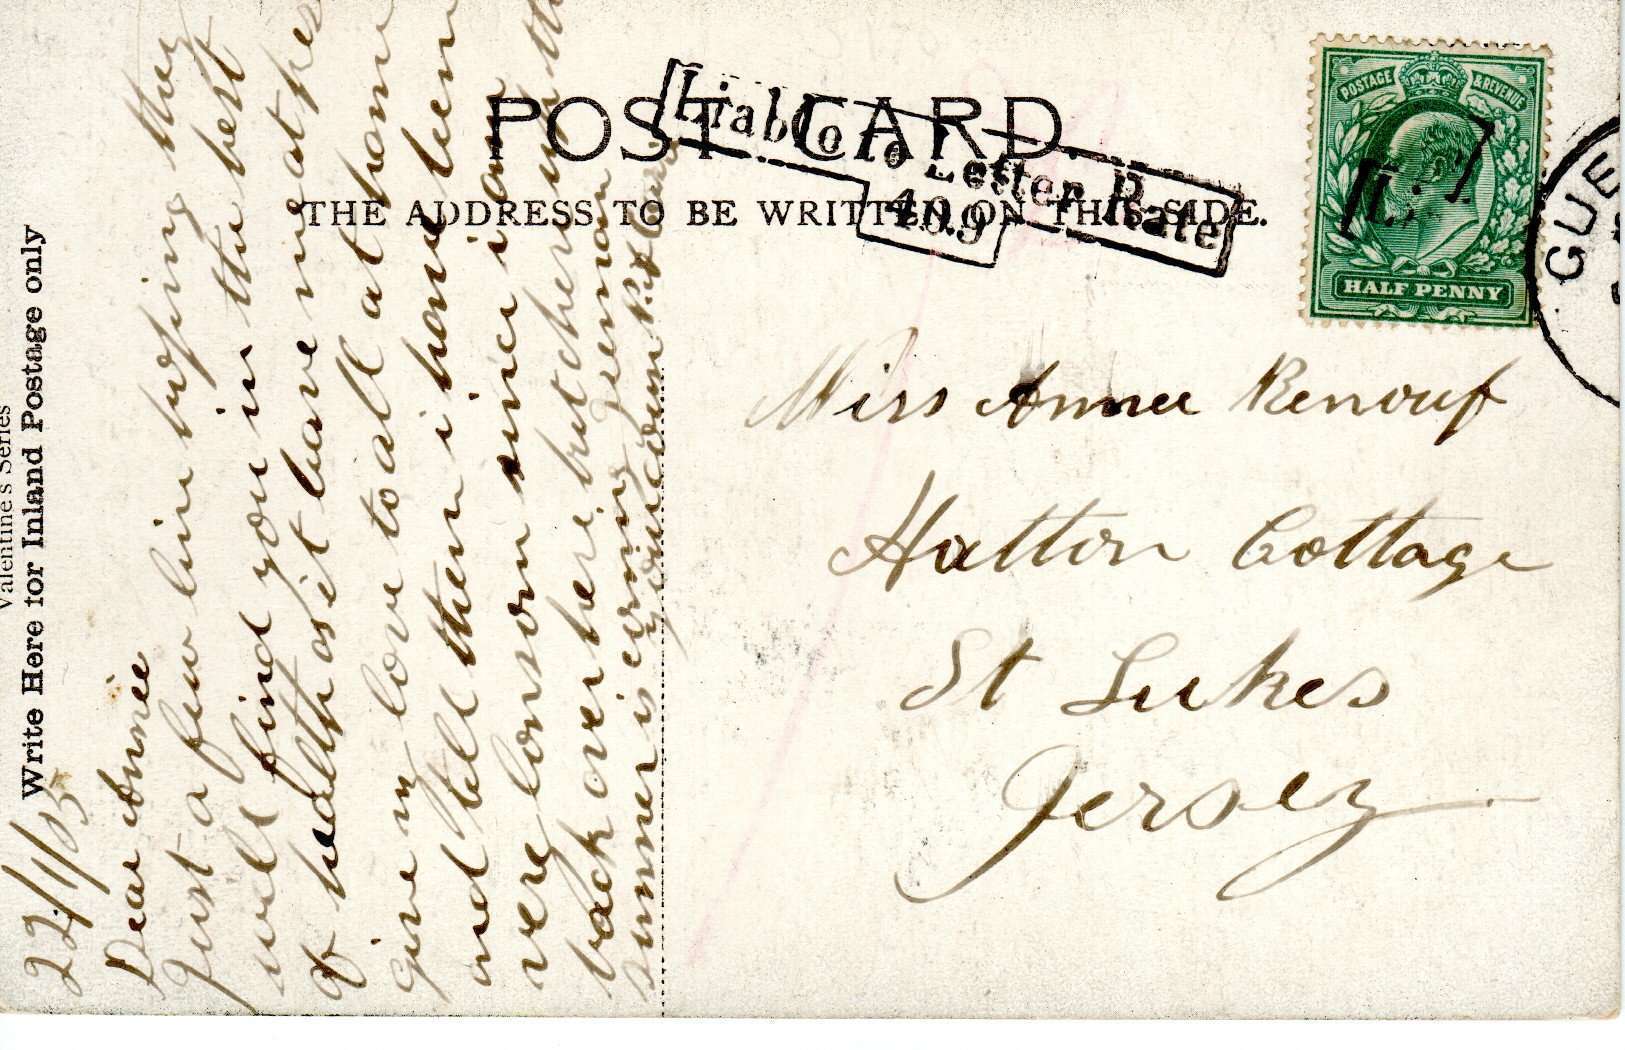 POST CARD
THE ADDRESS TO BE WRITTEN ON THIS SIDE.
Liable to Letter Rate
409
POSTAGE & REVENUE
HALF PENNY
GUE
Valentine's Series
Write Here for Inland Postage only
22/1/05
Dear Annie
Just a few line hoping they
will find you in the best
of health as it leave me at pres
give my love to all at home
and tell them i have been
very lonsom since i am
back over here but cheer up the
summer is coming
Miss Annee Renouf
Hatton Cottage
St Lukes
Jersey